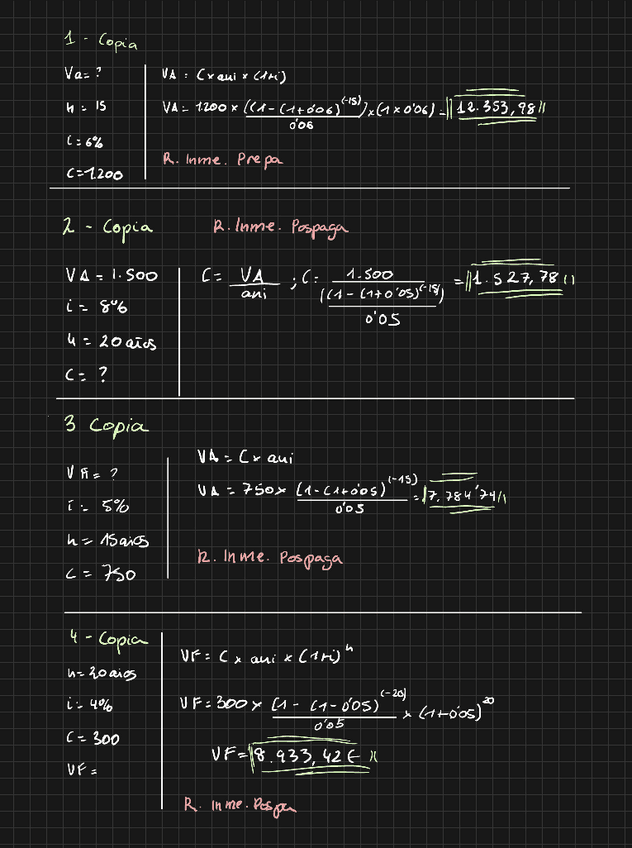 1 - Copia
Va = ?
n = 15
i = 6%
C = 1.200
VA = C x ani x (1+i)
VA = 1.200 x ((1 - (1+0'06)^(-15)) / 0'06) x (1 x 0'06) = 12.353,98
R. Inme. Prepa
2 - Copia
R. Inme. Pospaga
VA = 1.500
i = 8%
n = 20 años
C = ?
C = VA / ani ; C = 1.500 / ((1 - (1+0'05)^(-15)) / 0'05) = 1.527,78
3 Copia
VA = ?
i = 5%
n = 15 años
C = 750
VA = C x ani
VA = 750 x (1 - (1+0'05)^(-15)) / 0'05 = 7.784'74
R. Inme. Pospaga
4 - Copia
n = 20 años
i = 4%
C = 300
VF =
VF = C x ani x (1+i)^n
VF = 300 x (1 - (1-0'05)^(-20)) / 0'05 x (1+0'05)^20
VF = 8.933,42 €
R. Inme. Pospa